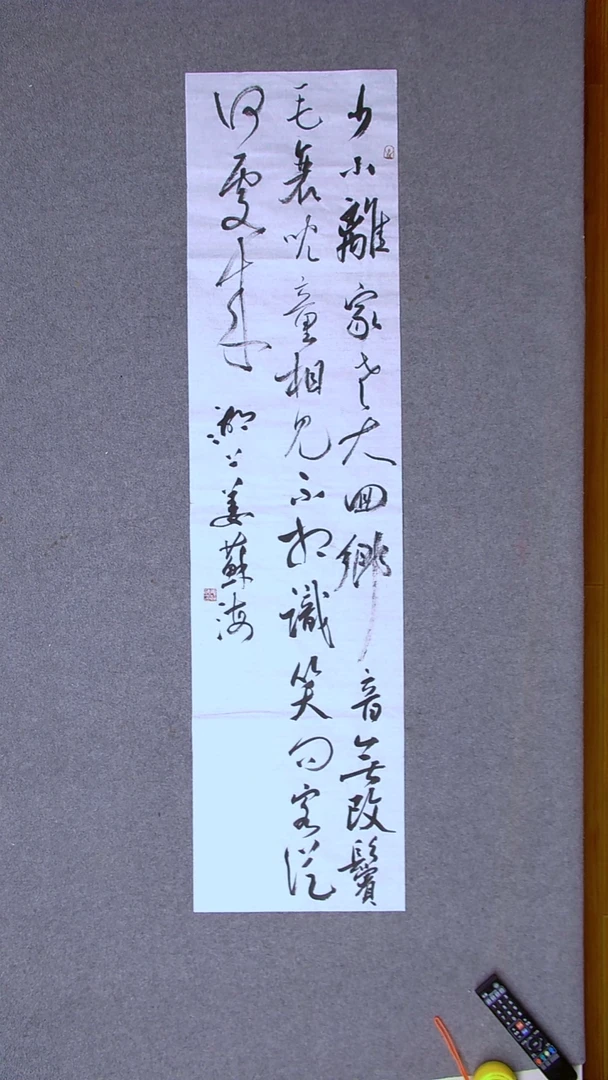 少小離家老大回鄉音無改鬢
毛衰兒童相見不相識笑問客從
何處來
姜蘇海